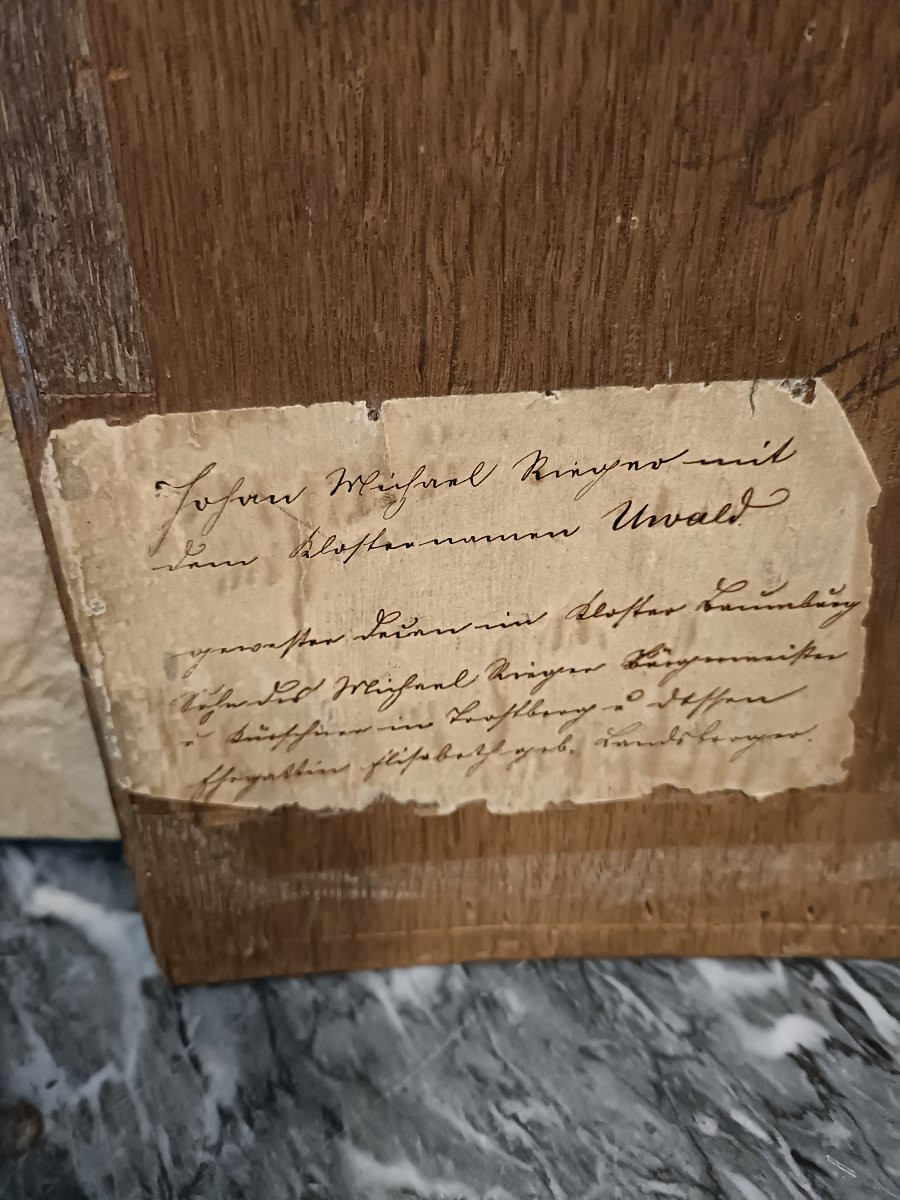 Johan Michael Rieger mit
dem Klosternamen Uwald
gewester Decan im Kloster Baumburg
Sohn des Michael Rieger Bürgermeister
u Kürschner in Trostberg u dessen
Ehegattin Elisabeth geb. Landsberger.